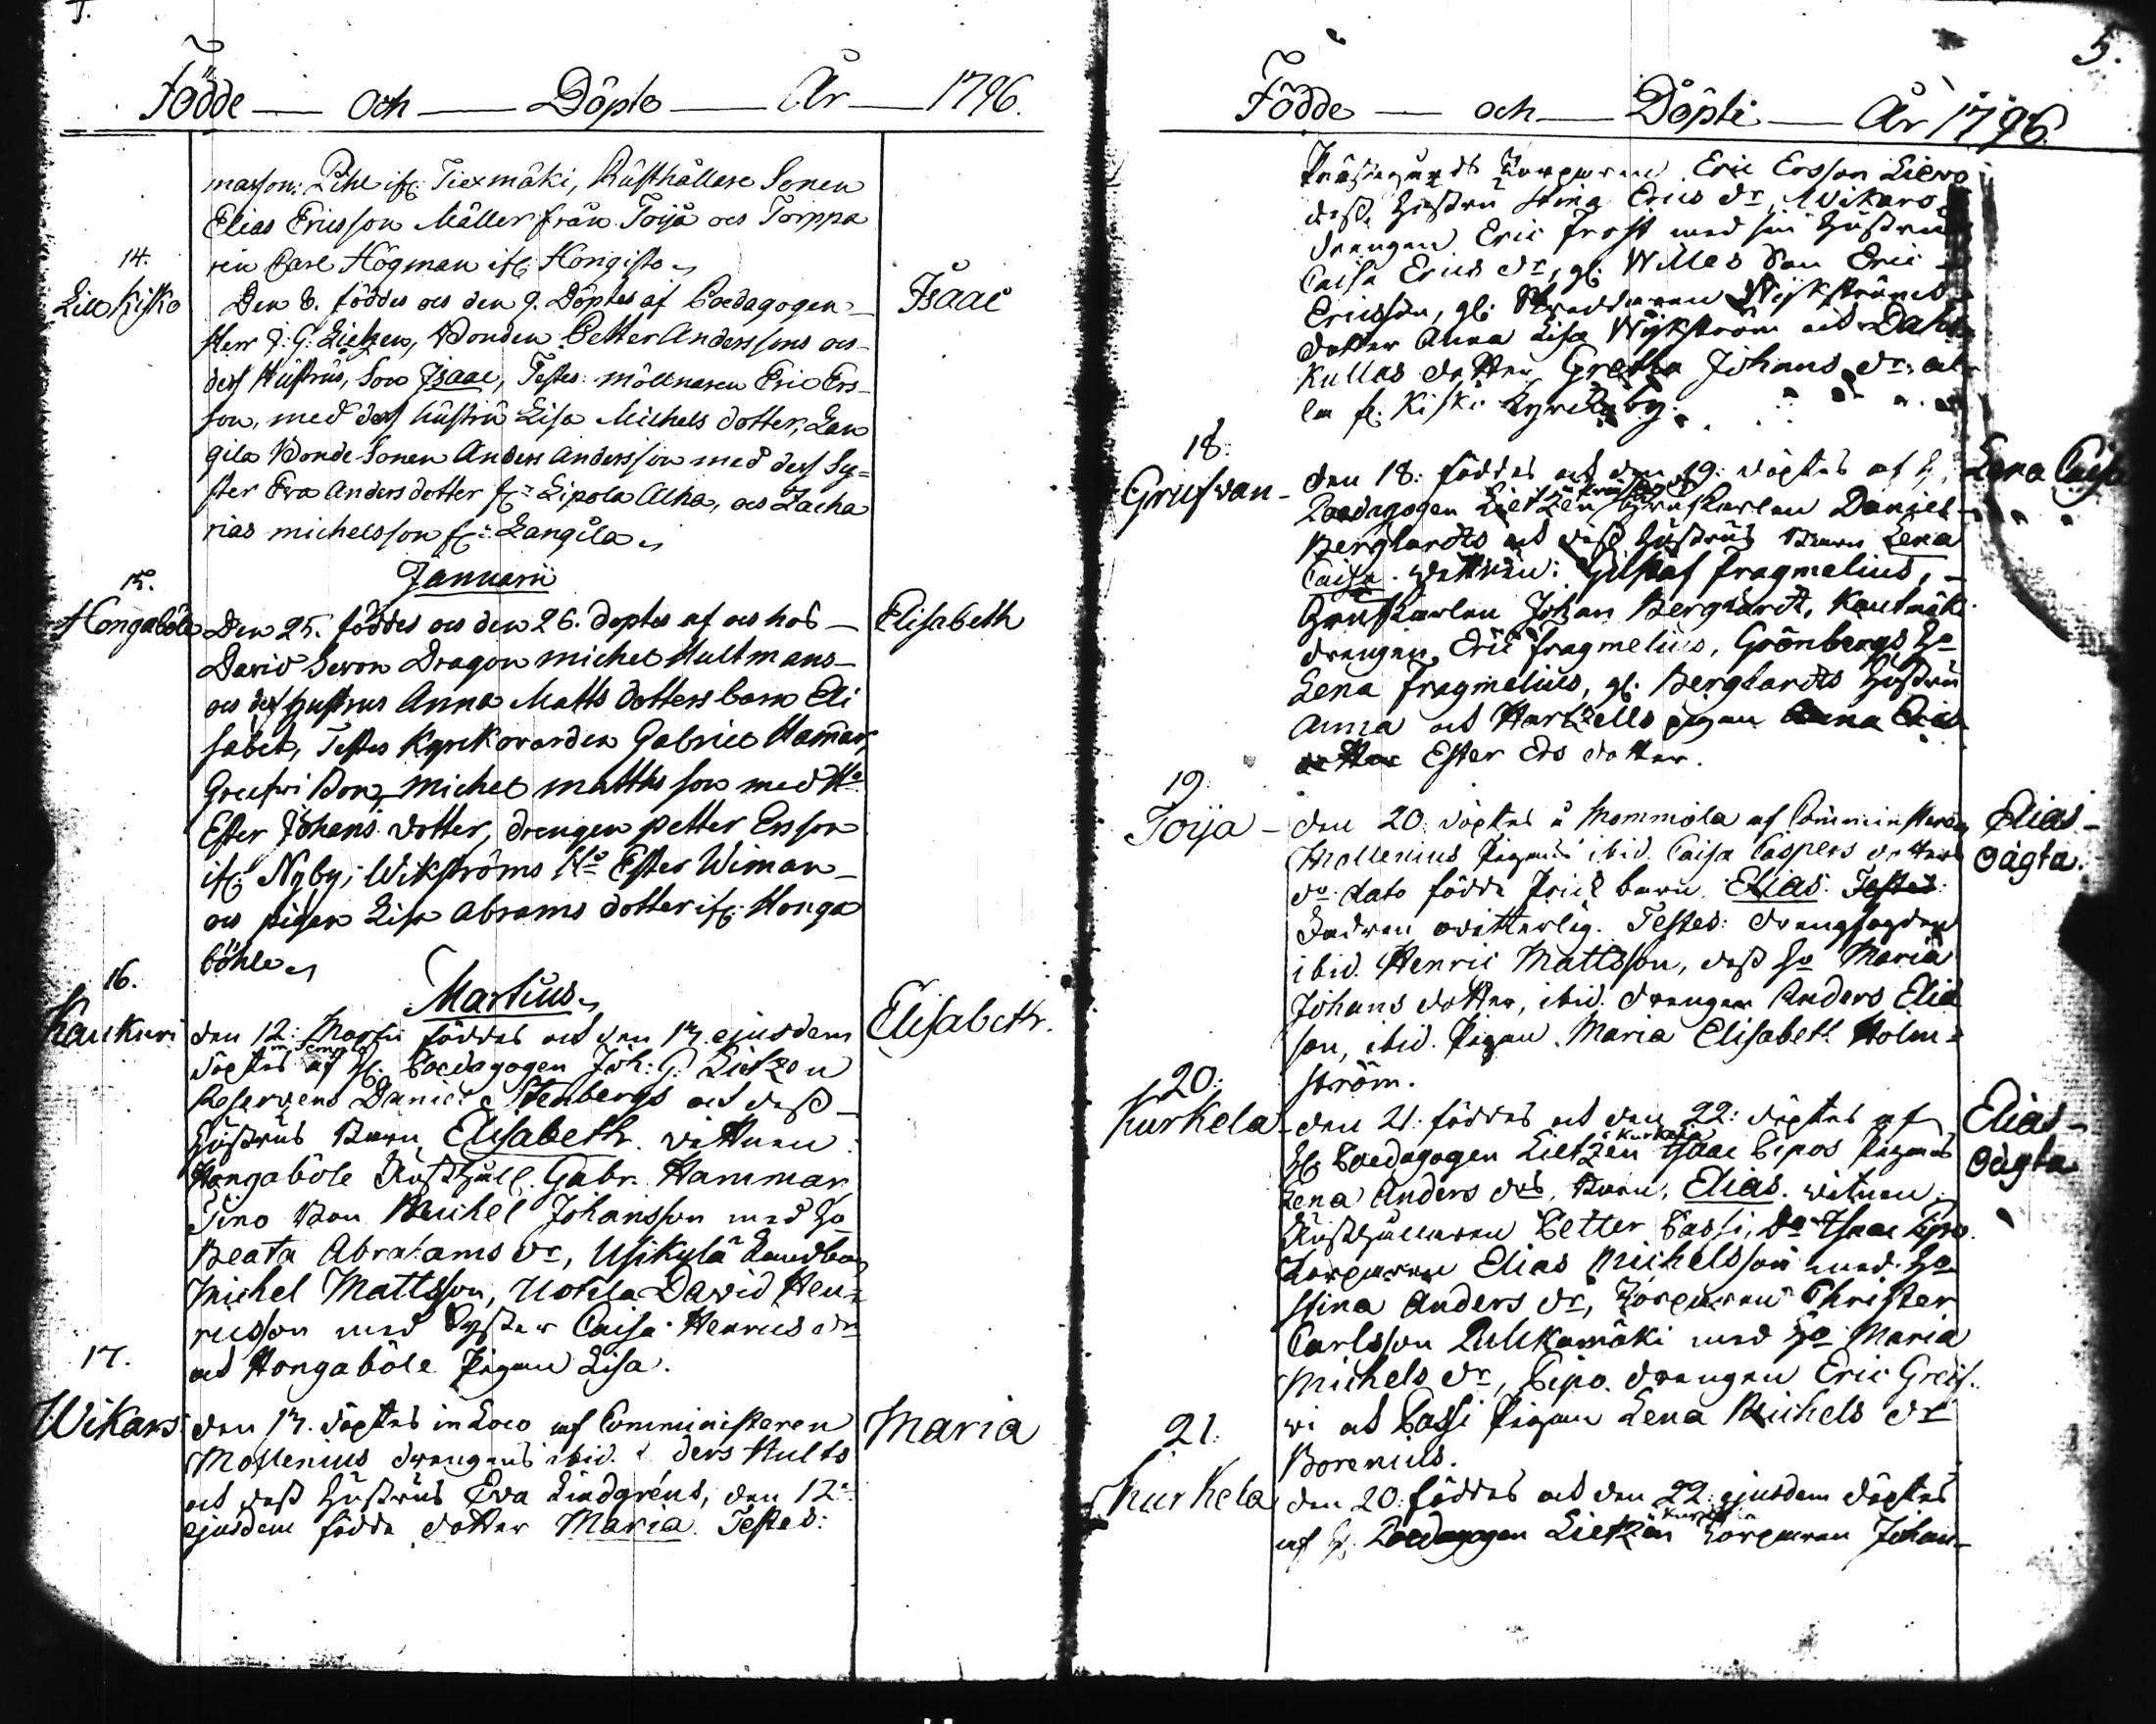 Födde — och — Döpte — År — 1796.
masson Pihl ifr: Tiexmäki, Rusthållare Sonen
Elias Ericsson Mäller från Toija och Torppa
ren Carl Högman ifr: Hongisto
14.
Lill Kisko
Den 8. föddes och den 9. Döptes af Pædagogen
Herr J. G. Lietzen, Bonden Petter Anderssons och
dess Hustrus, Son Isaac, Testes: möllnaren Eric Ers-
son, med dess hustru Lisa Michels dotter, Lan
gila Bonde Sonen Anders Andersson med dess Sy=
ster Eva Anders dotter fr: Lipola Alha, och Zacha
rias michelsson fr: Langila
Isaac
Januarii
15.
Hongaböle
Den 25. föddes och den 26. döptes af och hos
David Seron Dragon michel Hultmans
och dess hustrus Anna Matts dotters barn Eli
sabet, Testes Kyrkovarden Gabriel Hammar,
Greefvi Bon, Michel matths son med Ho
Ester Johans dotter, drengen petter Ersson
ifr: Nyby, Wikströms Ho Ester Wiman
och pigan Lisa Abrams dotter ifr: Honga
böhle
Elisabeth
Martius
16.
Kaukuri
den 12: Martii föddes och den 13. ejusdem
in templo
döptes af H: Pædagogen Joh: G: Lietzen
Reservens Daniel Stenbergs och dess
Hustrus Barn Elisabeth. wittnen
Hongaböle Rusthåll. Gabr. Hammar
Tino Bon Michel Johansson med Ho
Beata Abrahams dr, Usikylä Landbon
Michel Mattsson, Uotila David Hen=
ricsson med Syster Caisa Henrics dr
och Hongaböle Pigan Lisa.
Elisabeth.
17.
Wikars
den 13. döptes in Loco af Comministeren
Mollenius drengens ibid. ders Hults
och dess Hustrus Eva Lindgréns, den 12:
ejusdem födda dotter Maria. Testes:
Maria
5.
Födde — och — Döpte — År 1796.
Prästegårds Torparen Eric Ersson Liero
dess Hustru Stina Erics dr, Wikars
drängen Eric Frost med sin Hustru
Caisa Erics dr, gl: Willes Son Eric
Ericsson, gl: Skreddaren Wykströms
dotter Anna Lisa Wykström och Dahl
Kullas dotter Gretha Johans dr: al-
la fr: Kisko Kyrckoby.
18:
Grufvan
den 18. föddes och den 19: döptes af H:
Pædagogen Lietzén Grufkarlen Daniel
Berghardts och dess Hustrus Barn Lena
Caisa. wittnen: Gustaf Fragmelius,
Grufkarlen Johan Berghardt, Kautmäk
drengen Eric Fragmelius, Grönbergs Ho
Lena Fragmelius, gl: Berghardts Hustru
Anna och Hartzells pigan
Ester Ers dotter.
Lena Caisa
19:
Toija
den 20. döptes å Mommola af Comministeren
Mollenius Pigans ibid. Caisa Caspers dotters
do dato födda Frille barn Elias. Testes:
Fadren owetterlig. Testes: drengfogden
ibid. Henric Mattsson, dess Ho Maria
Johans dotter, ibid. drengen Anders Elia
son, ibid. Pigan Maria Elisabeth Holm=
ström.
Elias
oägta.
20:
Kurkela
den 21. föddes och den 22: döptes af
H: Pædagogen Lietzén å Kurkela Isaac Pipos Pigans
Lena Anders drs, Barn, Elias. witnen
Rusthållaren Petter Passi, Do Isaac Pipo
Torparen Elias Michelsson med Ho
Stina Anders dr, Torparen Christer
Carlsson Pulkamäki med Ho Maria
Michels dr, Pipo drengen Eric Greif-
wi och Passi Pigan Lena Michels dr
Borenius.
Elias
oägta
21.
Kurkela
den 20: föddes och den 22: ejusdem döptes
af H: Pædagogen Lietzén Torparen Johan